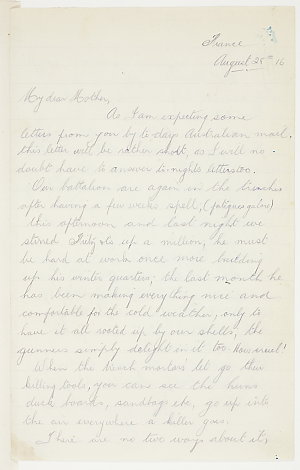 France
August 25th 16
My dear Mother,
As I am expecting some
letters from you by to-days Australian mail
this letter will be rather short, as I will no
doubt have to answer to-nights letters too.
Our battalion are again in the trenches
after having a few weeks spell, (fatigues galore)
This afternoon and last night we
stirred Fritz up a million, he must
be hard at work once more building
up his winter quarters; the last month he
has been making everything nice and
comfortable for the cold weather, only to
have it all rooted up by our shells, the
gunners simply delight in it too. How cruel!
When the trench mortars let go their
killing tools, you can see the huns
duck boards, sandbags etc, go up into
the air everywhere a killer goes.
There are no two ways about it,